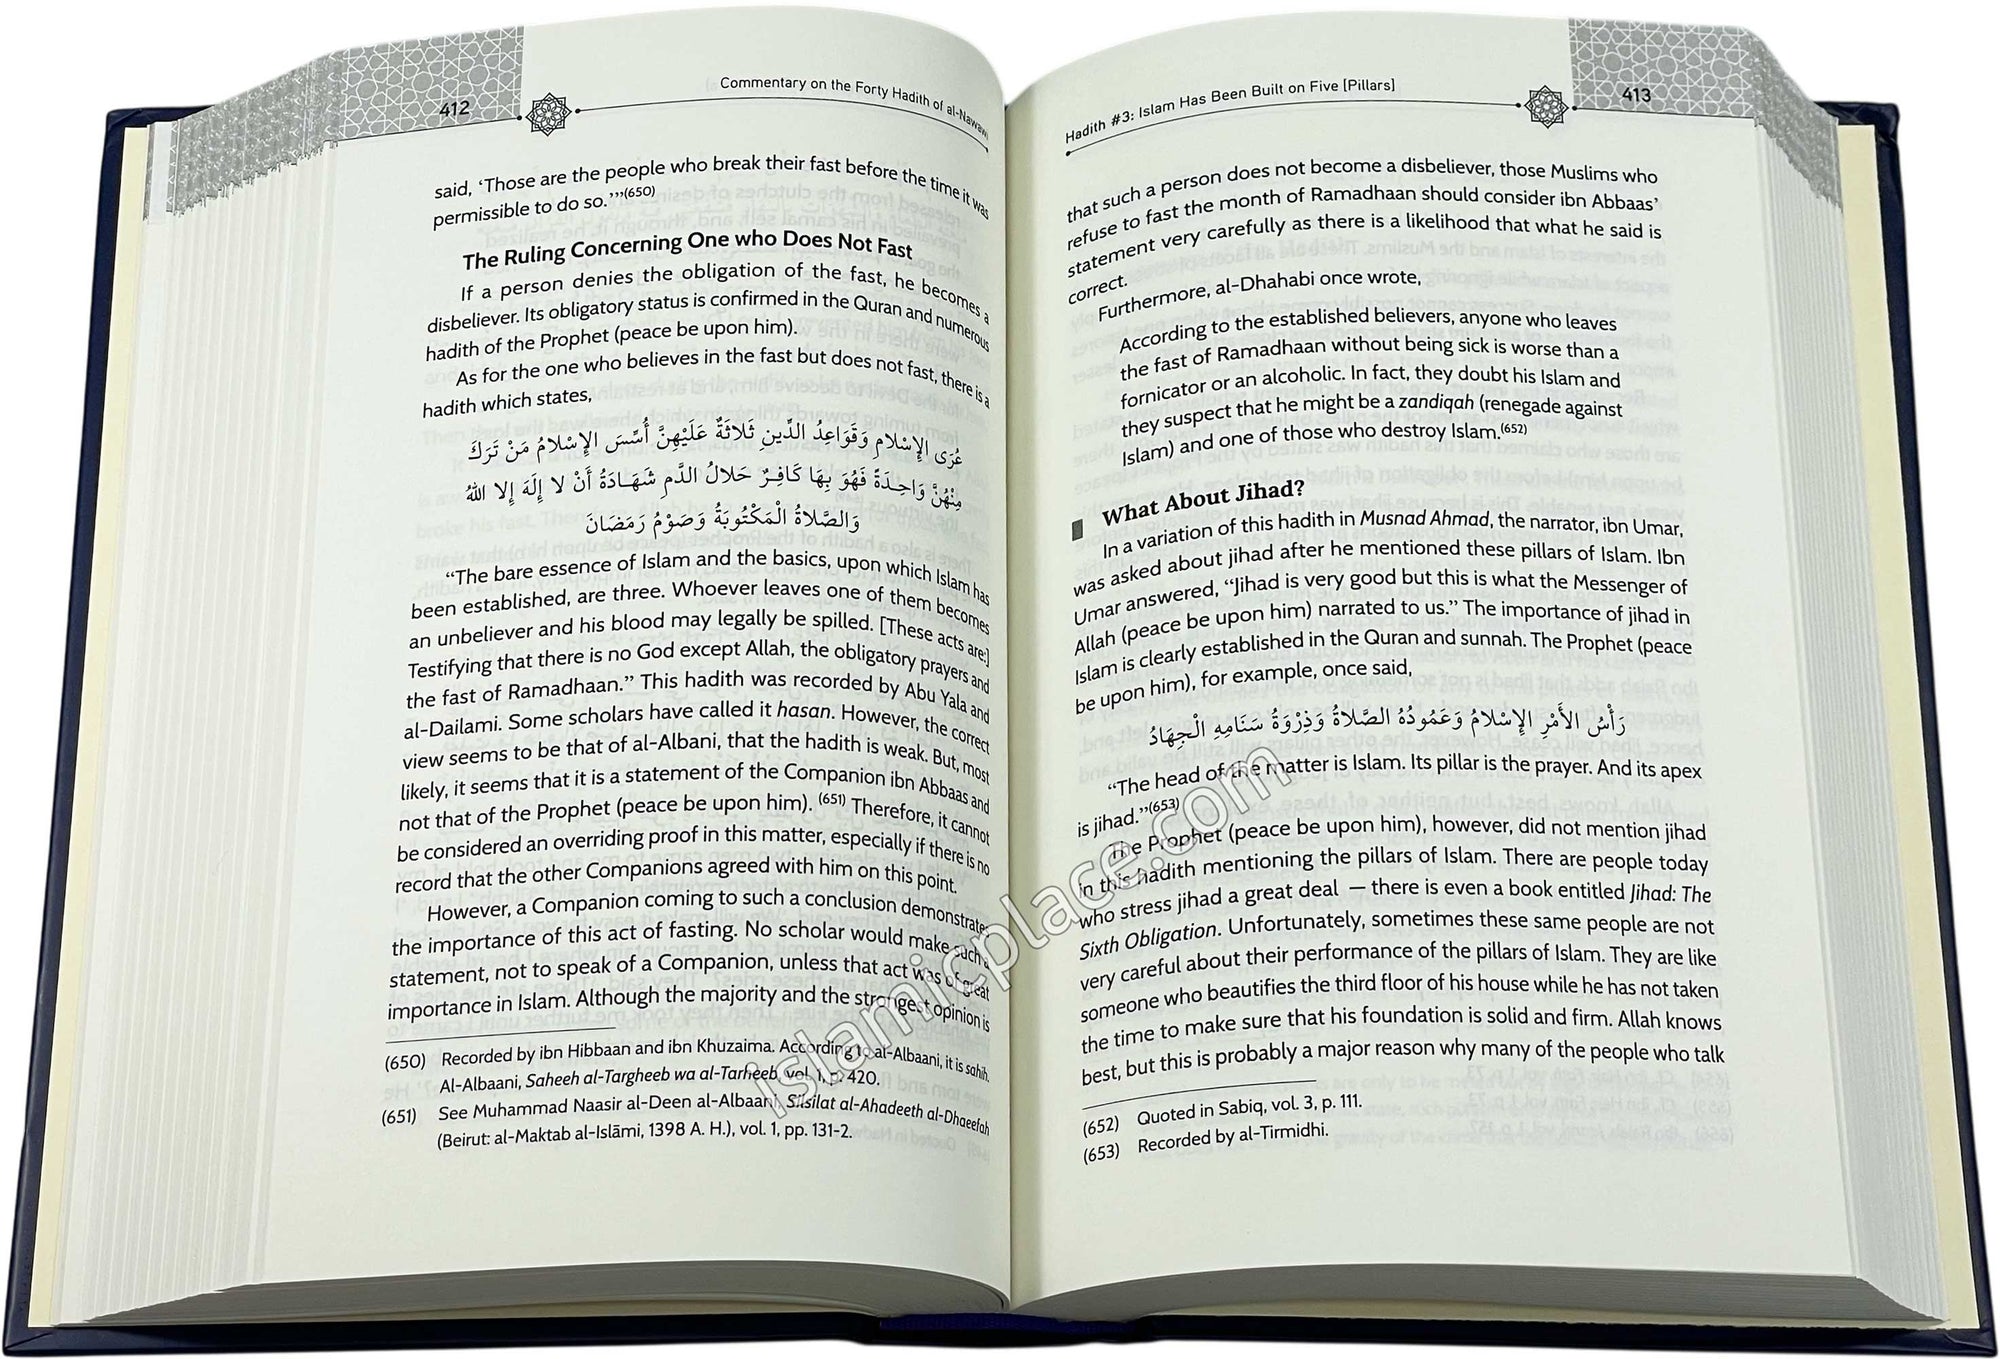 412
Commentary on the Forty Hadith of al-Nawawi
said, ‘Those are the people who break their fast before the time it was
permissible to do so.’”(650)
The Ruling Concerning One who Does Not Fast
If a person denies the obligation of the fast, he becomes a
disbeliever. Its obligatory status is confirmed in the Quran and numerous
hadith of the Prophet (peace be upon him).
As for the one who believes in the fast but does not fast, there is a
hadith which states,
عُرَى الإِسْلامِ وَقَوَاعِدُ الدِّينِ ثَلاثَةٌ عَلَيْهِنَّ أُسِّسَ الإِسْلامُ مَنْ تَرَكَ
مِنْهُنَّ وَاحِدَةً فَهُوَ بِهَا كَافِرٌ حَلالُ الدَّمِ شَهَادَةُ أَنْ لا إِلَهَ إِلا اللهُ
وَالصَّلاةُ الْمَكْتُوبَةُ وَصَوْمُ رَمَضَانَ
“The bare essence of Islam and the basics, upon which Islam has
been established, are three. Whoever leaves one of them becomes
an unbeliever and his blood may legally be spilled. [These acts are:]
Testifying that there is no God except Allah, the obligatory prayers and
the fast of Ramadhaan.” This hadith was recorded by Abu Yala and
al-Dailami. Some scholars have called it hasan. However, the correct
view seems to be that of al-Albani, that the hadith is weak. But, most
likely, it seems that it is a statement of the Companion ibn Abbaas and
not that of the Prophet (peace be upon him). (651) Therefore, it cannot
be considered an overriding proof in this matter, especially if there is no
record that the other Companions agreed with him on this point.
However, a Companion coming to such a conclusion demonstrates
the importance of this act of fasting. No scholar would make such a
statement, not to speak of a Companion, unless that act was of great
importance in Islam. Although the majority and the strongest opinion is
(650) Recorded by ibn Hibbaan and ibn Khuzaima. According to al-Albaani, it is sahih.
Al-Albaani, Saheeh al-Targheeb wa al-Tarheeb, vol. 1, p. 420.
(651) See Muhammad Naasir al-Deen al-Albaani, Silsilat al-Ahadeeth al-Dhaeefah
(Beirut: al-Maktab al-Islāmi, 1398 A. H.), vol. 1, pp. 131-2.
Hadith #3: Islam Has Been Built on Five [Pillars]
413
that such a person does not become a disbeliever, those Muslims who
refuse to fast the month of Ramadhaan should consider ibn Abbaas’
statement very carefully as there is a likelihood that what he said is
correct.
Furthermore, al-Dhahabi once wrote,
According to the established believers, anyone who leaves
the fast of Ramadhaan without being sick is worse than a
fornicator or an alcoholic. In fact, they doubt his Islam and
they suspect that he might be a zandiqah (renegade against
Islam) and one of those who destroy Islam.(652)
What About Jihad?
In a variation of this hadith in Musnad Ahmad, the narrator, ibn Umar,
was asked about jihad after he mentioned these pillars of Islam. Ibn
Umar answered, “Jihad is very good but this is what the Messenger of
Allah (peace be upon him) narrated to us.” The importance of jihad in
Islam is clearly established in the Quran and sunnah. The Prophet (peace
be upon him), for example, once said,
رَأْسُ الأَمْرِ الإِسْلامُ وَعَمُودُهُ الصَّلاةُ وَذِرْوَةُ سَنَامِهِ الْجِهَادُ
“The head of the matter is Islam. Its pillar is the prayer. And its apex
is jihad.”(653)
The Prophet (peace be upon him), however, did not mention jihad
in this hadith mentioning the pillars of Islam. There are people today
who stress jihad a great deal — there is even a book entitled Jihad: The
Sixth Obligation. Unfortunately, sometimes these same people are not
very careful about their performance of the pillars of Islam. They are like
someone who beautifies the third floor of his house while he has not taken
the time to make sure that his foundation is solid and firm. Allah knows
best, but this is probably a major reason why many of the people who talk
(652) Quoted in Sabiq, vol. 3, p. 111.
(653) Recorded by al-Tirmidhi.
islamicplace.com